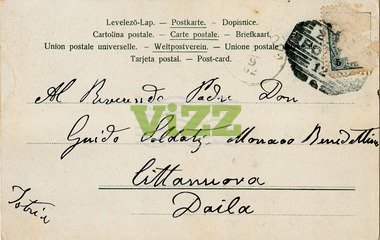 Levelező-Lap. — Postkarte. — Dopisnice.
Cartolina postale. — Carte postale. — Briefkaart.
Union postale universelle. — Weltpostverein. — Unione postale
Tarjeta postal. — Post-card.
Al Reverendo Padre Don
ViZZ
Guido Monaco Benedettin
Cittanuova
Istria
Daila